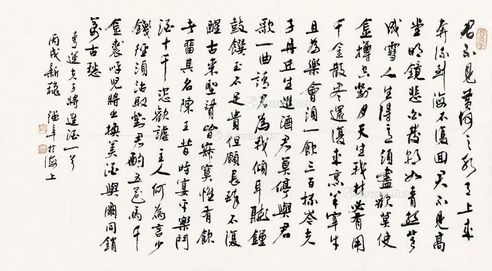 君不見黃河之水天上來
奔流到海不復回君不見高
堂明鏡悲白髮朝如青絲暮
成雪人生得意須盡歡莫使
金樽空對月天生我材必有用
千金散盡還復來烹羊宰牛
且為樂會須一飲三百杯岑夫
子丹丘生進酒君莫停與君
歌一曲請君為我傾耳聽鐘
鼓饌玉不足貴但願長醉不復
醒古來聖賢皆寂寞惟有飲
者留其名陳王昔時宴平樂斗
酒十千恣歡謔主人何為言少
錢徑須沽取對君酌五花馬千
金裘呼兒將出換美酒與爾同銷
萬古愁
將進酒一首
丙戌新穐 於海上